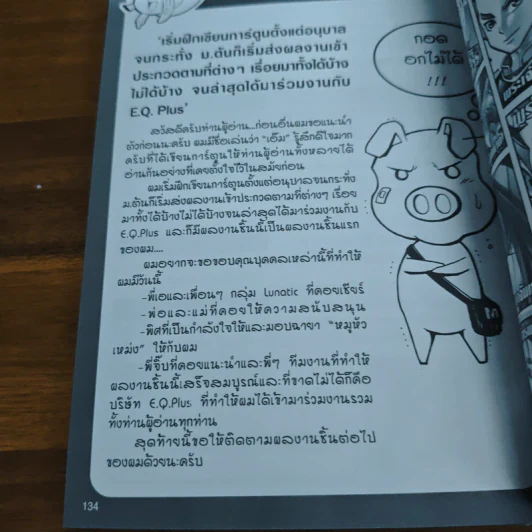 'เริ่มฝึกเขียนการ์ตูนตั้งแต่อนุบาล
จนกระทั่ง ม.ต้นก็เริ่มส่งผลงานเข้า
ประกวดตามที่ต่างๆ เรื่อยมาทั้งได้บ้าง
ไม่ได้บ้าง จนล่าสุดได้มาร่วมงานกับ
E.Q. Plus'
สวัสดีครับท่านผู้อ่าน...ก่อนอื่นผมขอแนะนำ
ตัวก่อนนะครับ ผมมีชื่อเล่นว่า "เอ็ม" รู้สึกดีใจมาก
ครับที่ได้เขียนการ์ตูนให้ท่านผู้อ่านทั้งหลายได้
อ่านกันอย่างที่เคยตั้งใจไว้ในสมัยก่อน
ผมเริ่มฝึกเขียนการ์ตูนตั้งแต่อนุบาลจนกระทั่ง
ม.ต้นก็เริ่มส่งผลงานเข้าประกวดตามที่ต่างๆ เรื่อย
มาทั้งได้บ้างไม่ได้บ้างจนล่าสุดได้มาร่วมงานกับ
E.Q.Plus และก็มีผลงานชิ้นนี้เป็นผลงานชิ้นแรก
ของผม....
ผมอยากจะขอขอบคุณบุคคลเหล่านี้ที่ทำให้
ผมมีวันนี้
-พี่เอและเพื่อนๆ กลุ่ม Lunatic ที่คอยเชียร์
-พ่อและแม่ที่คอยให้ความสนับสนุน
-พิศที่เป็นกำลังใจให้และมอบฉายา "หมูหัว
เหม่ง" ให้กับผม
-พี่จิ๊บที่คอยแนะนำและพี่ๆ ทีมงานที่ทำให้
ผลงานชิ้นนี้เสร็จสมบูรณ์และที่ขาดไม่ได้ก็คือ
บริษัท E.Q.Plus ที่ทำให้ผมได้เข้ามาร่วมงานรวม
ทั้งท่านผู้อ่านทุกท่าน
สุดท้ายนี้ขอให้ติดตามผลงานชิ้นต่อไป
ของผมด้วยนะครับ
134
กอด
อกไม่ได้
!!!